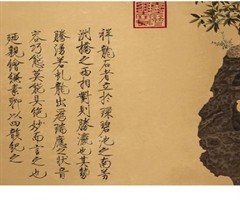 祥龍石者立於環碧池之南芳
洲橋之西相對則勝瀛也其勢
騰湧若虬龍出為瑞應之狀奇
容巧態莫能具絕妙而言之也
廼親繪縑素聊以四韻紀之